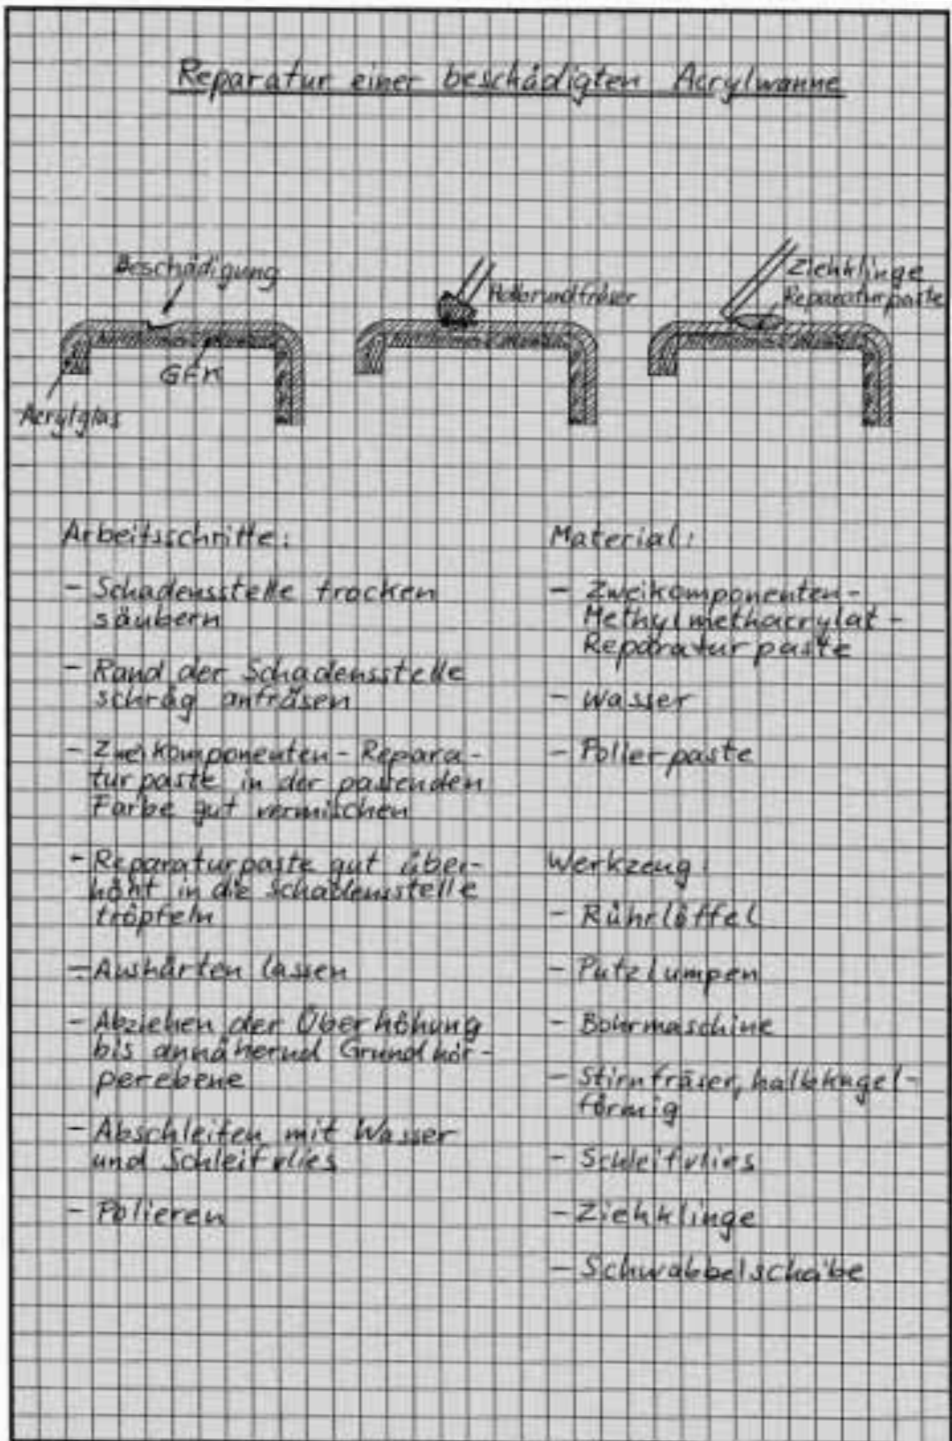 Reparatur einer beschädigten Acrylwanne
Beschädigung
GFK
Acrylglas
Halbrundfräser
Ziehklinge
Reparaturpaste
Arbeitsschritte:
- Schadensstelle trocken
säubern
- Rand der Schadensstelle
schräg anfräsen
- Zweikomponenten-Repara-
turpaste in der passenden
Farbe gut vermischen
- Reparaturpaste gut über-
höht in die Schadensstelle
tröpfeln
- Aushärten lassen
- Abziehen der Überhöhung
bis annähernd Grundkör-
perebene
- Abschleifen mit Wasser
und Schleifvlies
- Polieren
Material:
- Zweikomponenten-
Methylmethacrylat-
Reparaturpaste
- Wasser
- Polierpaste
Werkzeug:
- Rührlöffel
- Putzlumpen
- Bohrmaschine
- Stirnfräser, halbkugel-
förmig
- Schleifvlies
- Ziehklinge
- Schwabbelscheibe